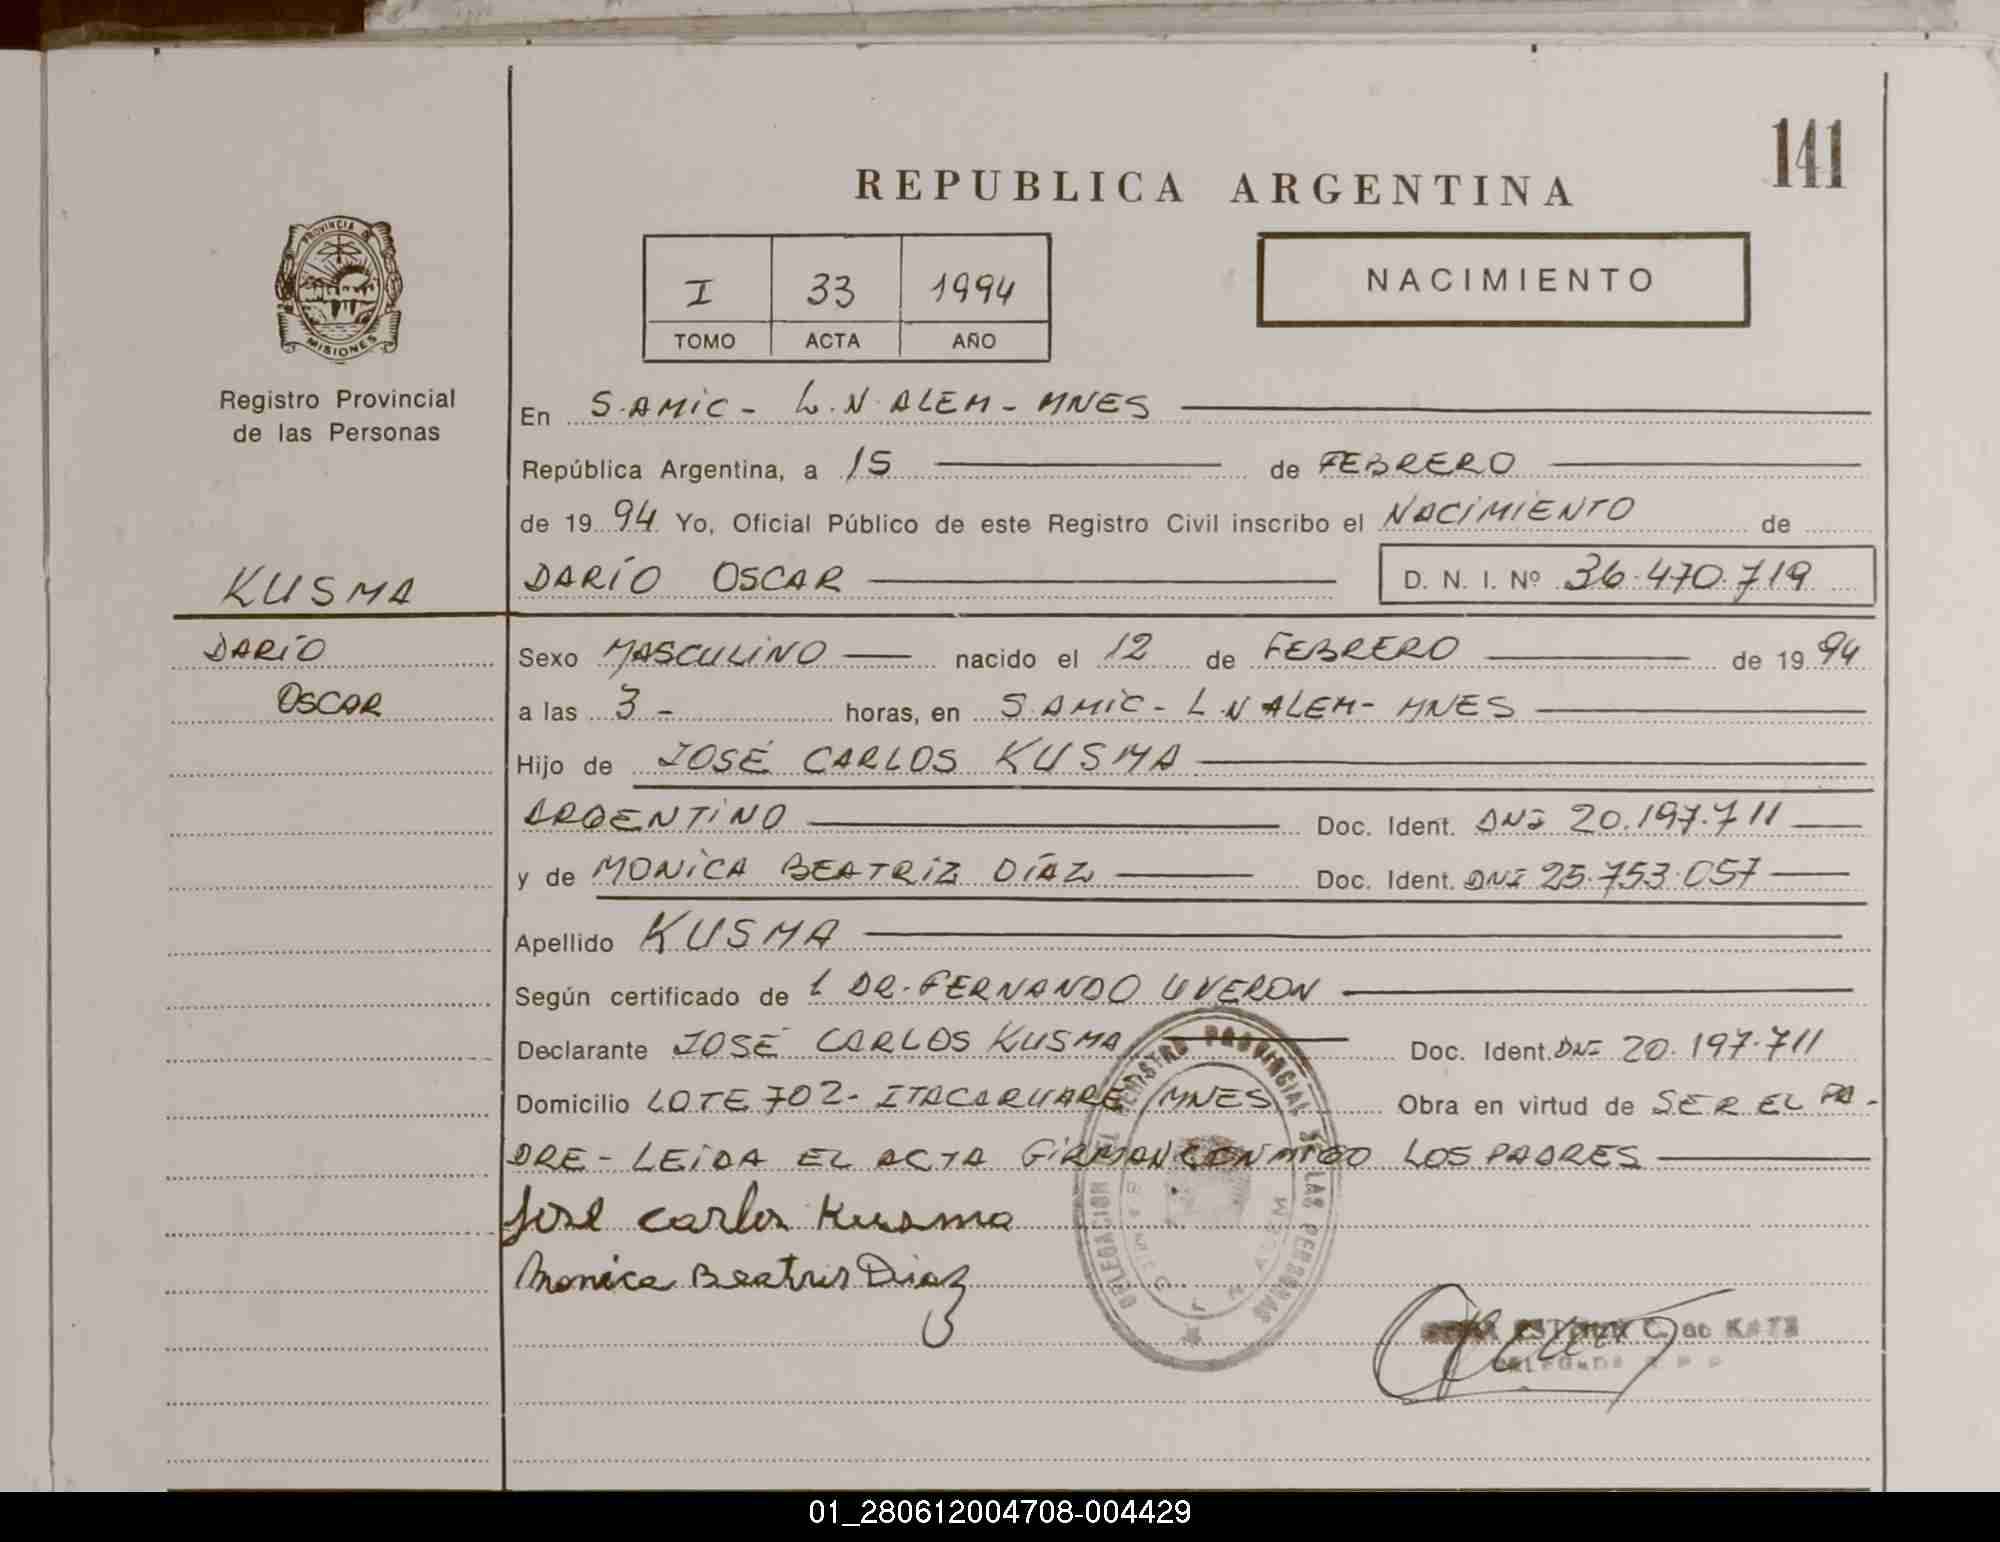 141
REPUBLICA ARGENTINA
PROVINCIA DE
MISIONES
Registro Provincial
de las Personas
I 33 1994
TOMO ACTA AÑO
NACIMIENTO
En S.AMIC - L.N.ALEM - MNES
República Argentina, a 15 de FEBRERO
de 19 94 Yo, Oficial Público de este Registro Civil inscribo el NACIMIENTO de
KUSMA
DARÍO OSCAR D. N. I. Nº 36.470.719
DARÍO
OSCAR
Sexo MASCULINO nacido el 12 de FEBRERO de 19 94
a las 3 - horas, en S.AMIC - L.N ALEM - MNES
Hijo de JOSÉ CARLOS KUSMA
ARGENTINO Doc. Ident. DNI 20.197.711
y de MONICA BEATRIZ DÍAZ Doc. Ident. DNI 25.753.057
Apellido KUSMA
Según certificado de DR. FERNANDO UVERON
Declarante JOSÉ CARLOS KUSMA Doc. Ident. DNI 20.197.711
Domicilio LOTE 702 - ITACARUARE MNES Obra en virtud de SER EL PA-
DRE - LEIDA EL ACTA FIRMAN CONMIGO LOS PADRES
José Carlos Kusma
Monica Beatris Diaz
DELEGACION DEL REGISTRO PROVINCIAL DE LAS PERSONAS
L N ALEM
C. de KATZ
01_280612004708-004429